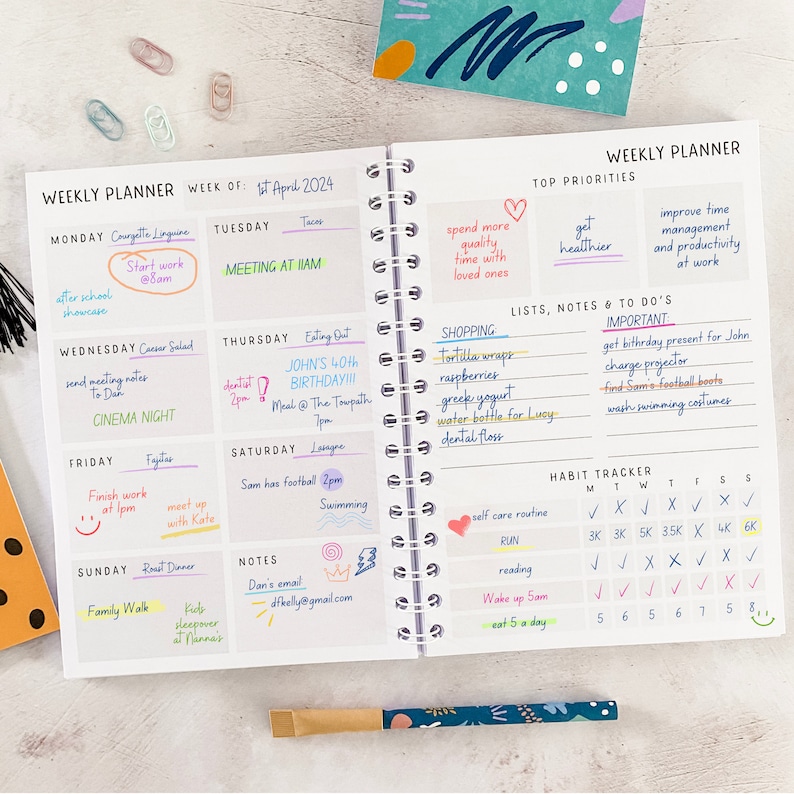 WEEKLY PLANNER
WEEK OF: 1st April 2024
MONDAY Courgette Linguine
Start work
@8am
after school
showcase
TUESDAY Tacos
MEETING AT 11AM
WEDNESDAY Caesar Salad
send meeting notes
to Dan
CINEMA NIGHT
THURSDAY Eating Out
JOHN'S 40th
BIRTHDAY!!!
dentist
2pm !
Meal @ The Towpath
7pm
FRIDAY Fajitas
Finish work
at 1pm
meet up
with Kate
SATURDAY Lasagne
Sam has football 2pm
Swimming
SUNDAY Roast Dinner
Family Walk
Kids
sleepover
at Nanna's
NOTES
Dan's email:
dfkelly@gmail.com
WEEKLY PLANNER
TOP PRIORITIES
spend more
quality
time with
loved ones
get
healthier
improve time
management
and productivity
at work
LISTS, NOTES & TO DO'S
SHOPPING:
tortilla wraps
raspberries
greek yogurt
water bottle for Lucy
dental floss
IMPORTANT:
get bithrday present for John
charge projector
find Sam's football boots
wash swimming costumes
HABIT TRACKER
M T W T F S S
self care routine ✓ X ✓ X ✓ X ✓
RUN 3K 3K 5K 3.5K X 4K 6K
reading ✓ ✓ X X ✓ X ✓
Wake up 5am ✓ ✓ ✓ ✓ ✓ X ✓
eat 5 a day 5 6 5 6 7 5 8